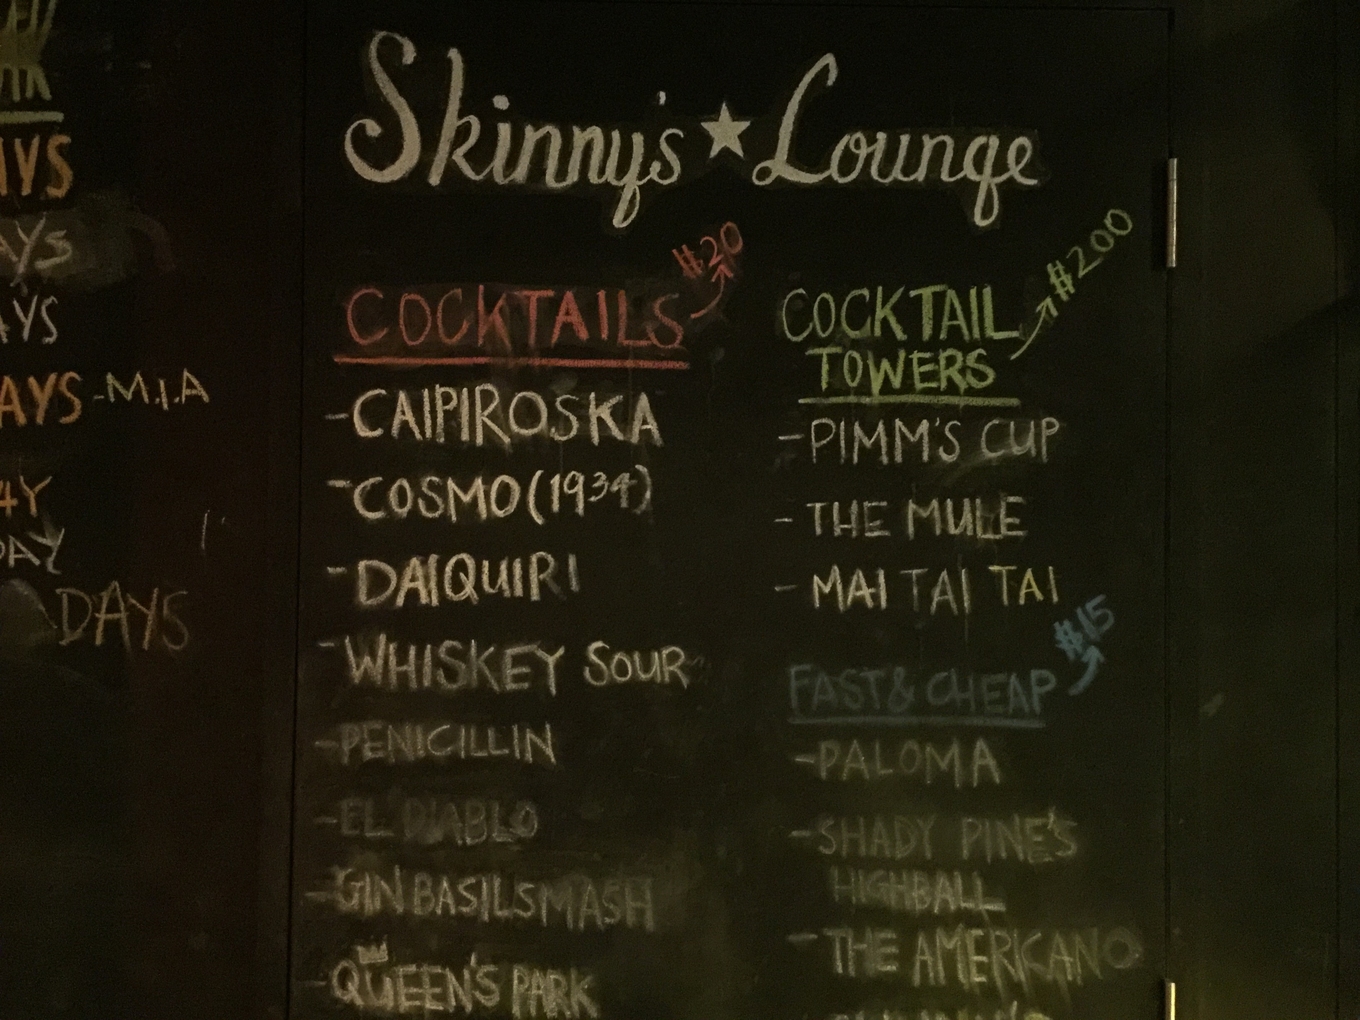 AYS
AYS
AYS
AYS -M.I.A
AY
DAY
DAYS
Skinny's ★ Lounge
COCKTAILS $20
-CAIPIROSKA
-COSMO (1934)
-DAIQUIRI
-WHISKEY SOUR
-PENICILLIN
-EL DIABLO
-GIN BASIL SMASH
-QUEEN'S PARK
COCKTAIL $200
TOWERS
-PIMM'S CUP
-THE MULE
-MAI TAI TAI
FAST & CHEAP $15
-PALOMA
-SHADY PINE'S
HIGHBALL
-THE AMERICANO